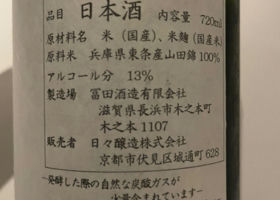 品目 日本酒 内容量 720ml
原材料名 米(国産)、米麹(国産米)
原料米 兵庫県東条産山田錦100%
アルコール分 13%
製造場 冨田酒造有限会社
滋賀県長浜市木之本町
木之本1107
販売者 日々醸造株式会社
京都市伏見区城通町628
−発酵した際の自然な炭酸ガスが
少量含まれています−